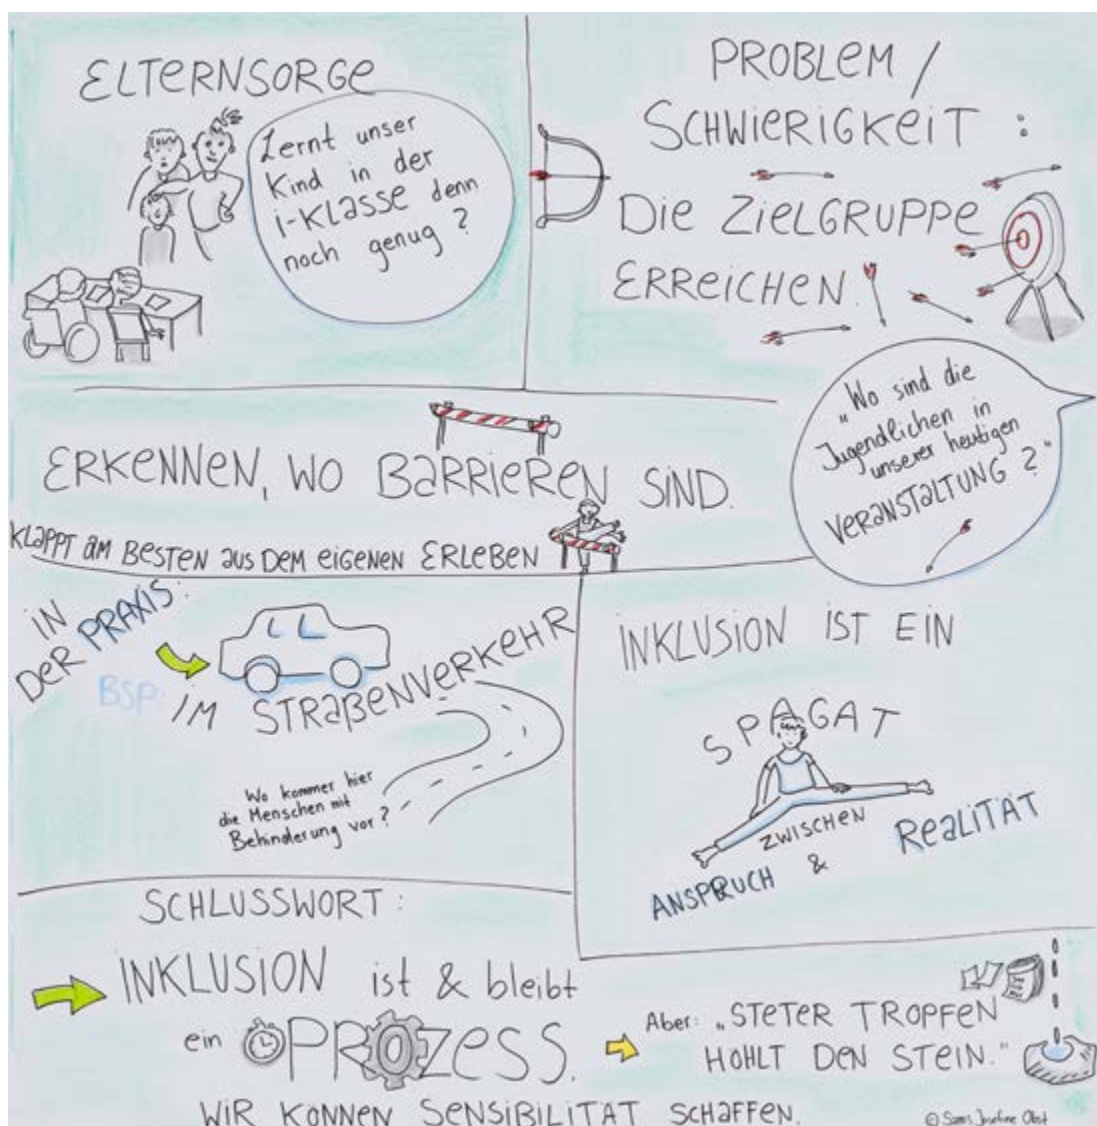 ELTERNSORGE
Lernt unser
Kind in der
i-Klasse denn
noch genug?
PROBLEM /
SCHWIERIGKEIT:
DIE ZIELGRUPPE
ERREICHEN.
„Wo sind die
Jugendlichen in
unserer heutigen
VERANSTALTUNG?"
ERKENNEN, WO BARRIEREN SIND.
KLAPPT AM BESTEN AUS DEM EIGENEN ERLEBEN
IN
DER PRAXIS:
BSP: IM STRAßENVERKEHR
Wo kommer hier
die Menschen mit
Behinderung vor?
INKLUSION IST EIN
SPAGAT
ZWISCHEN
ANSPRUCH & REALITÄT
SCHLUSSWORT:
INKLUSION ist & bleibt
ein PROZESS.
WIR KÖNNEN SENSIBILITÄT SCHAFFEN.
Aber: „STETER TROPFEN
HÖHLT DEN STEIN."
©